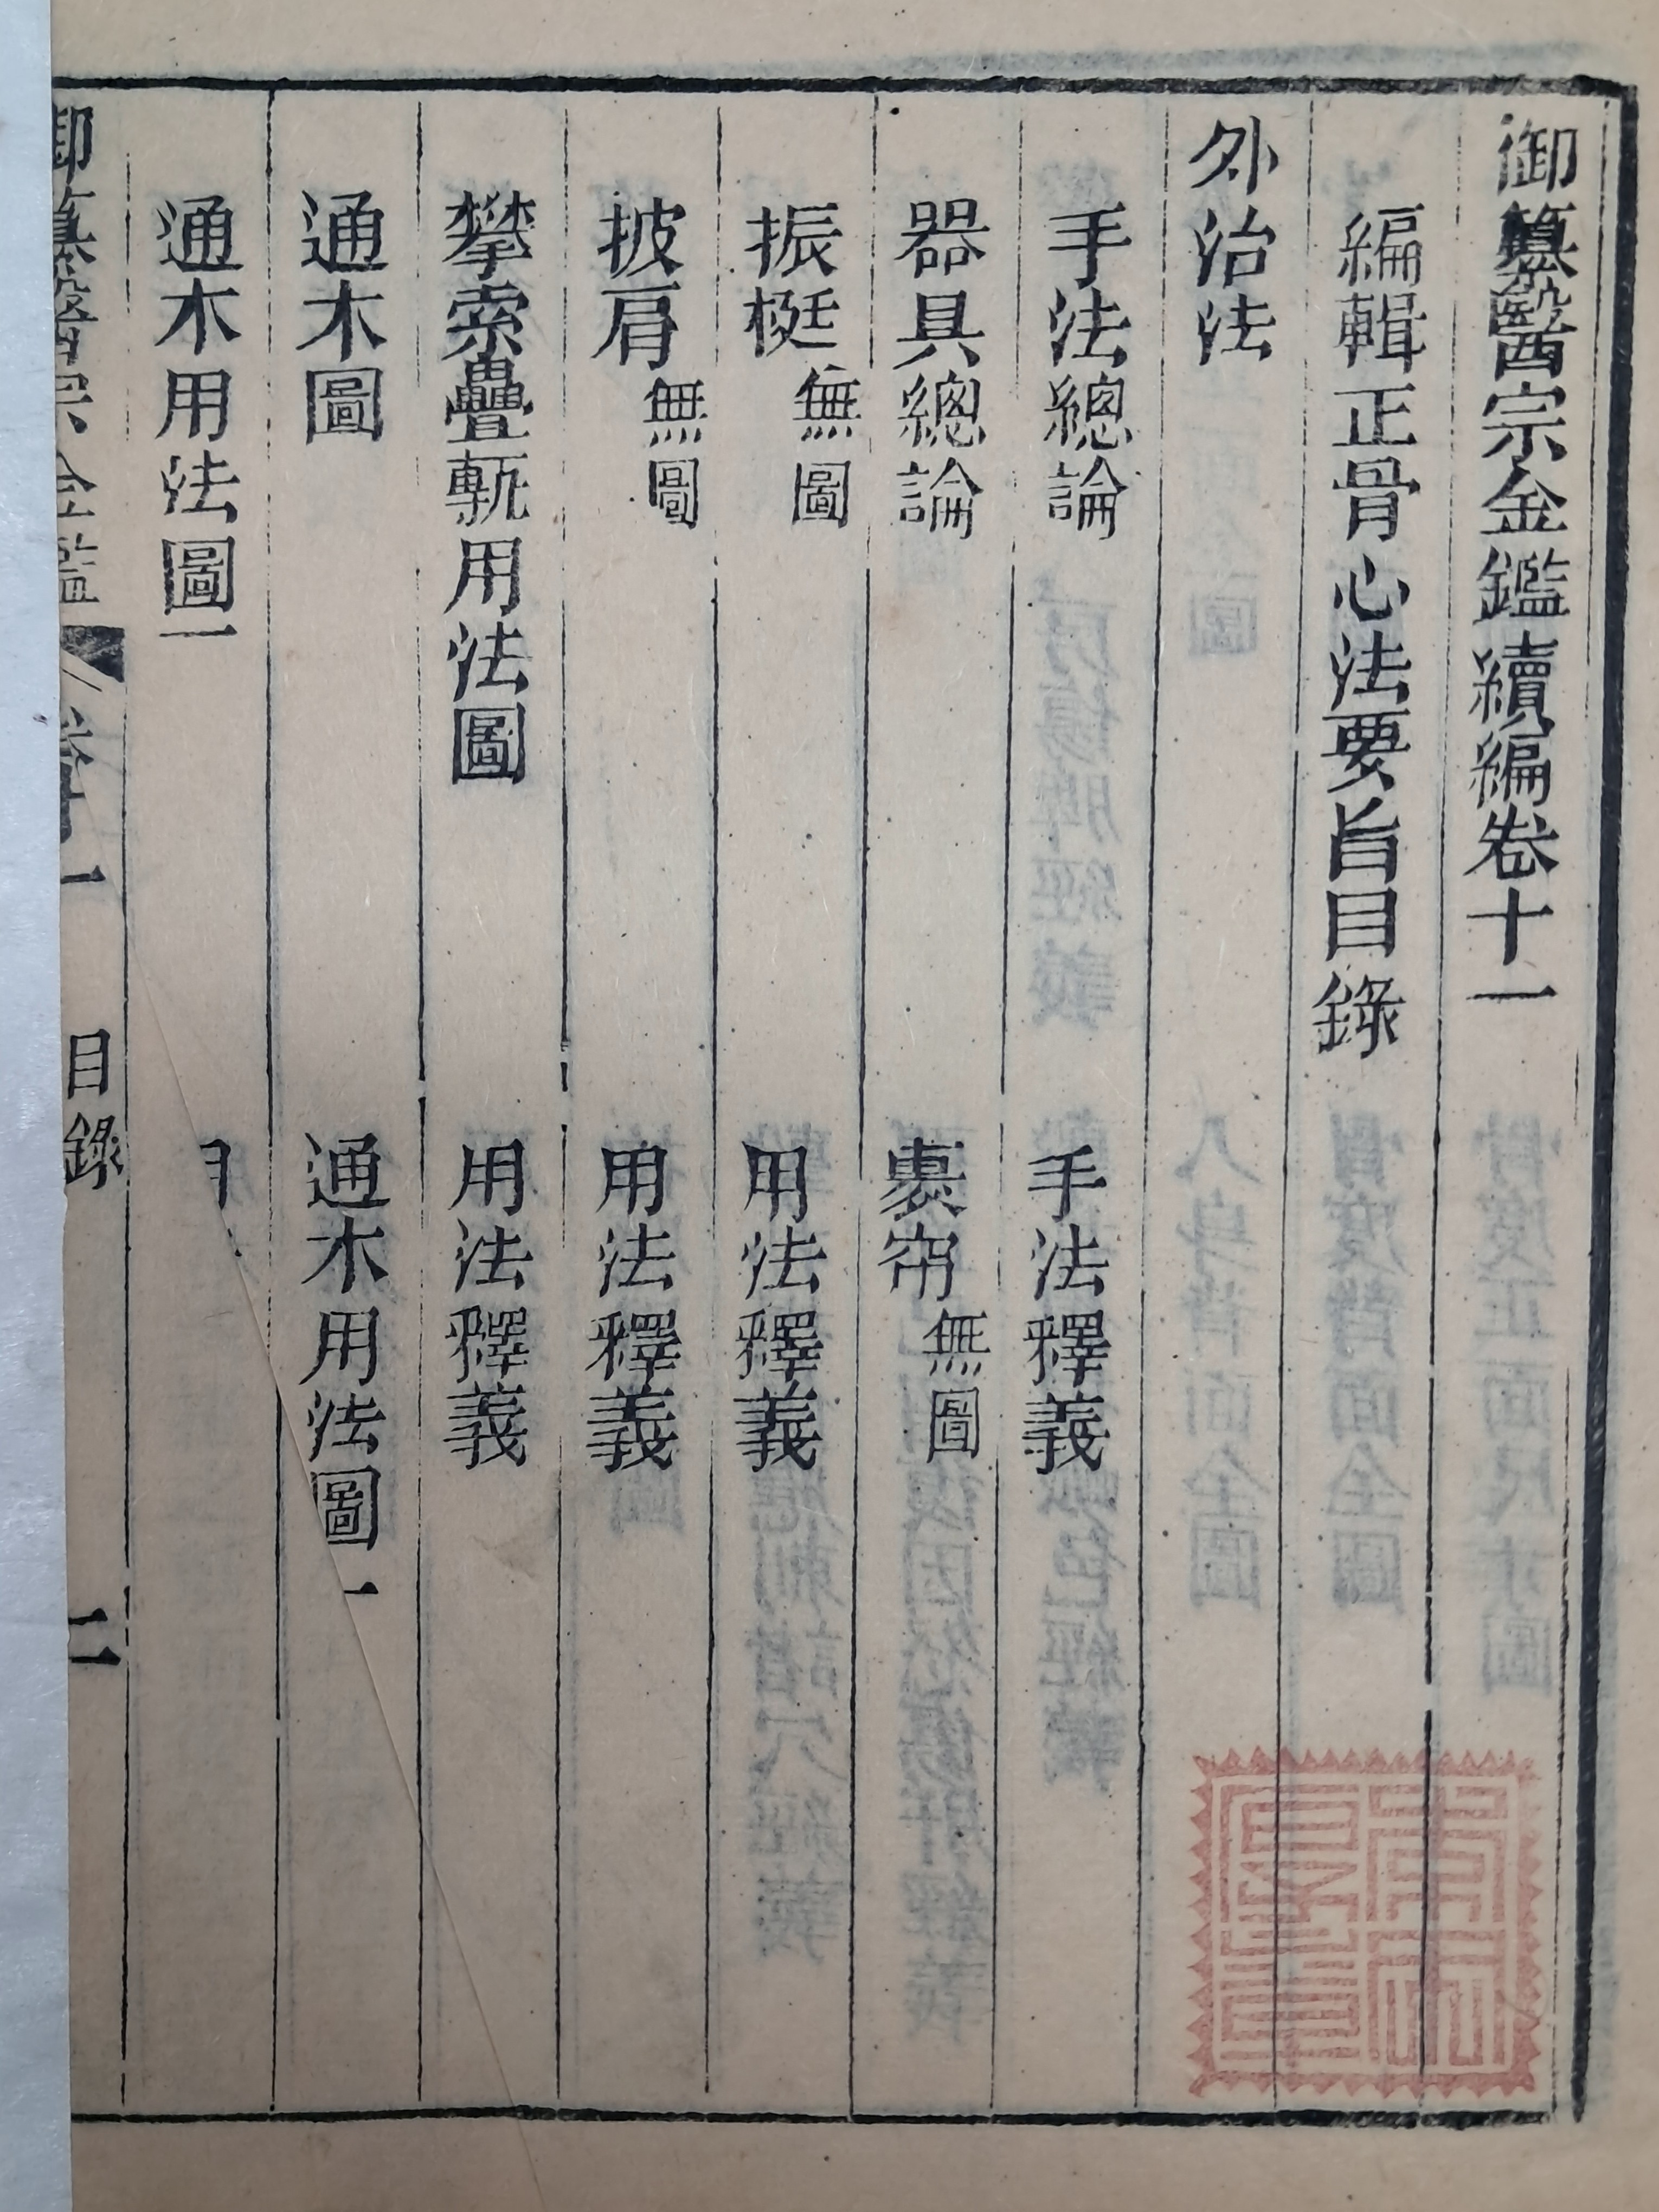 御纂醫宗金鑑續編卷十一
編輯正骨心法要旨目錄
外治法
手法總論 手法釋義
器具總論 裹帘 無圖
振梃 無圖 用法釋義
披肩 無圖 用法釋義
攀索疊甎用法圖 用法釋義
通木圖 通木用法圖一
通木用法圖二
御纂醫宗金鑑 目錄 二